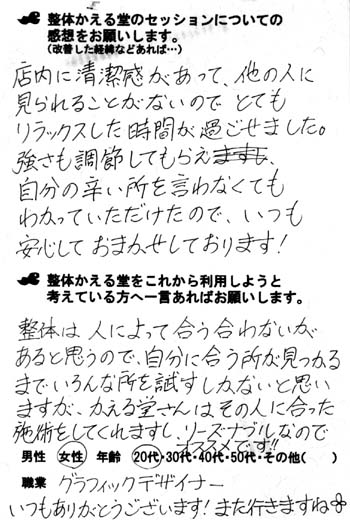 整体かえる堂のセッションについての
感想をお願いします。
(改善した経緯などあれば…)
店内に清潔感があって、他の人に
見られることがないので とても
リラックスした時間が過ごせました。
強さも調節してもらえますし、
自分の辛い所を言わなくても
わかっていただけたので、いつも
安心しておまかせしております！
整体かえる堂をこれから利用しようと
考えている方へ一言あればお願いします。
整体は人によって合う合わないが
あると思うので、自分に合う所が見つかる
までいろんな所を試すしかないと思い
ますが、かえる堂さんはその人に合った
施術をしてくれますし、リーズナブルなので
オススメです!!
男性 女性 年齢 20代・30代・40代・50代・その他( )
職業 グラフィックデザイナー
いつもありがとうございます！また行きますね